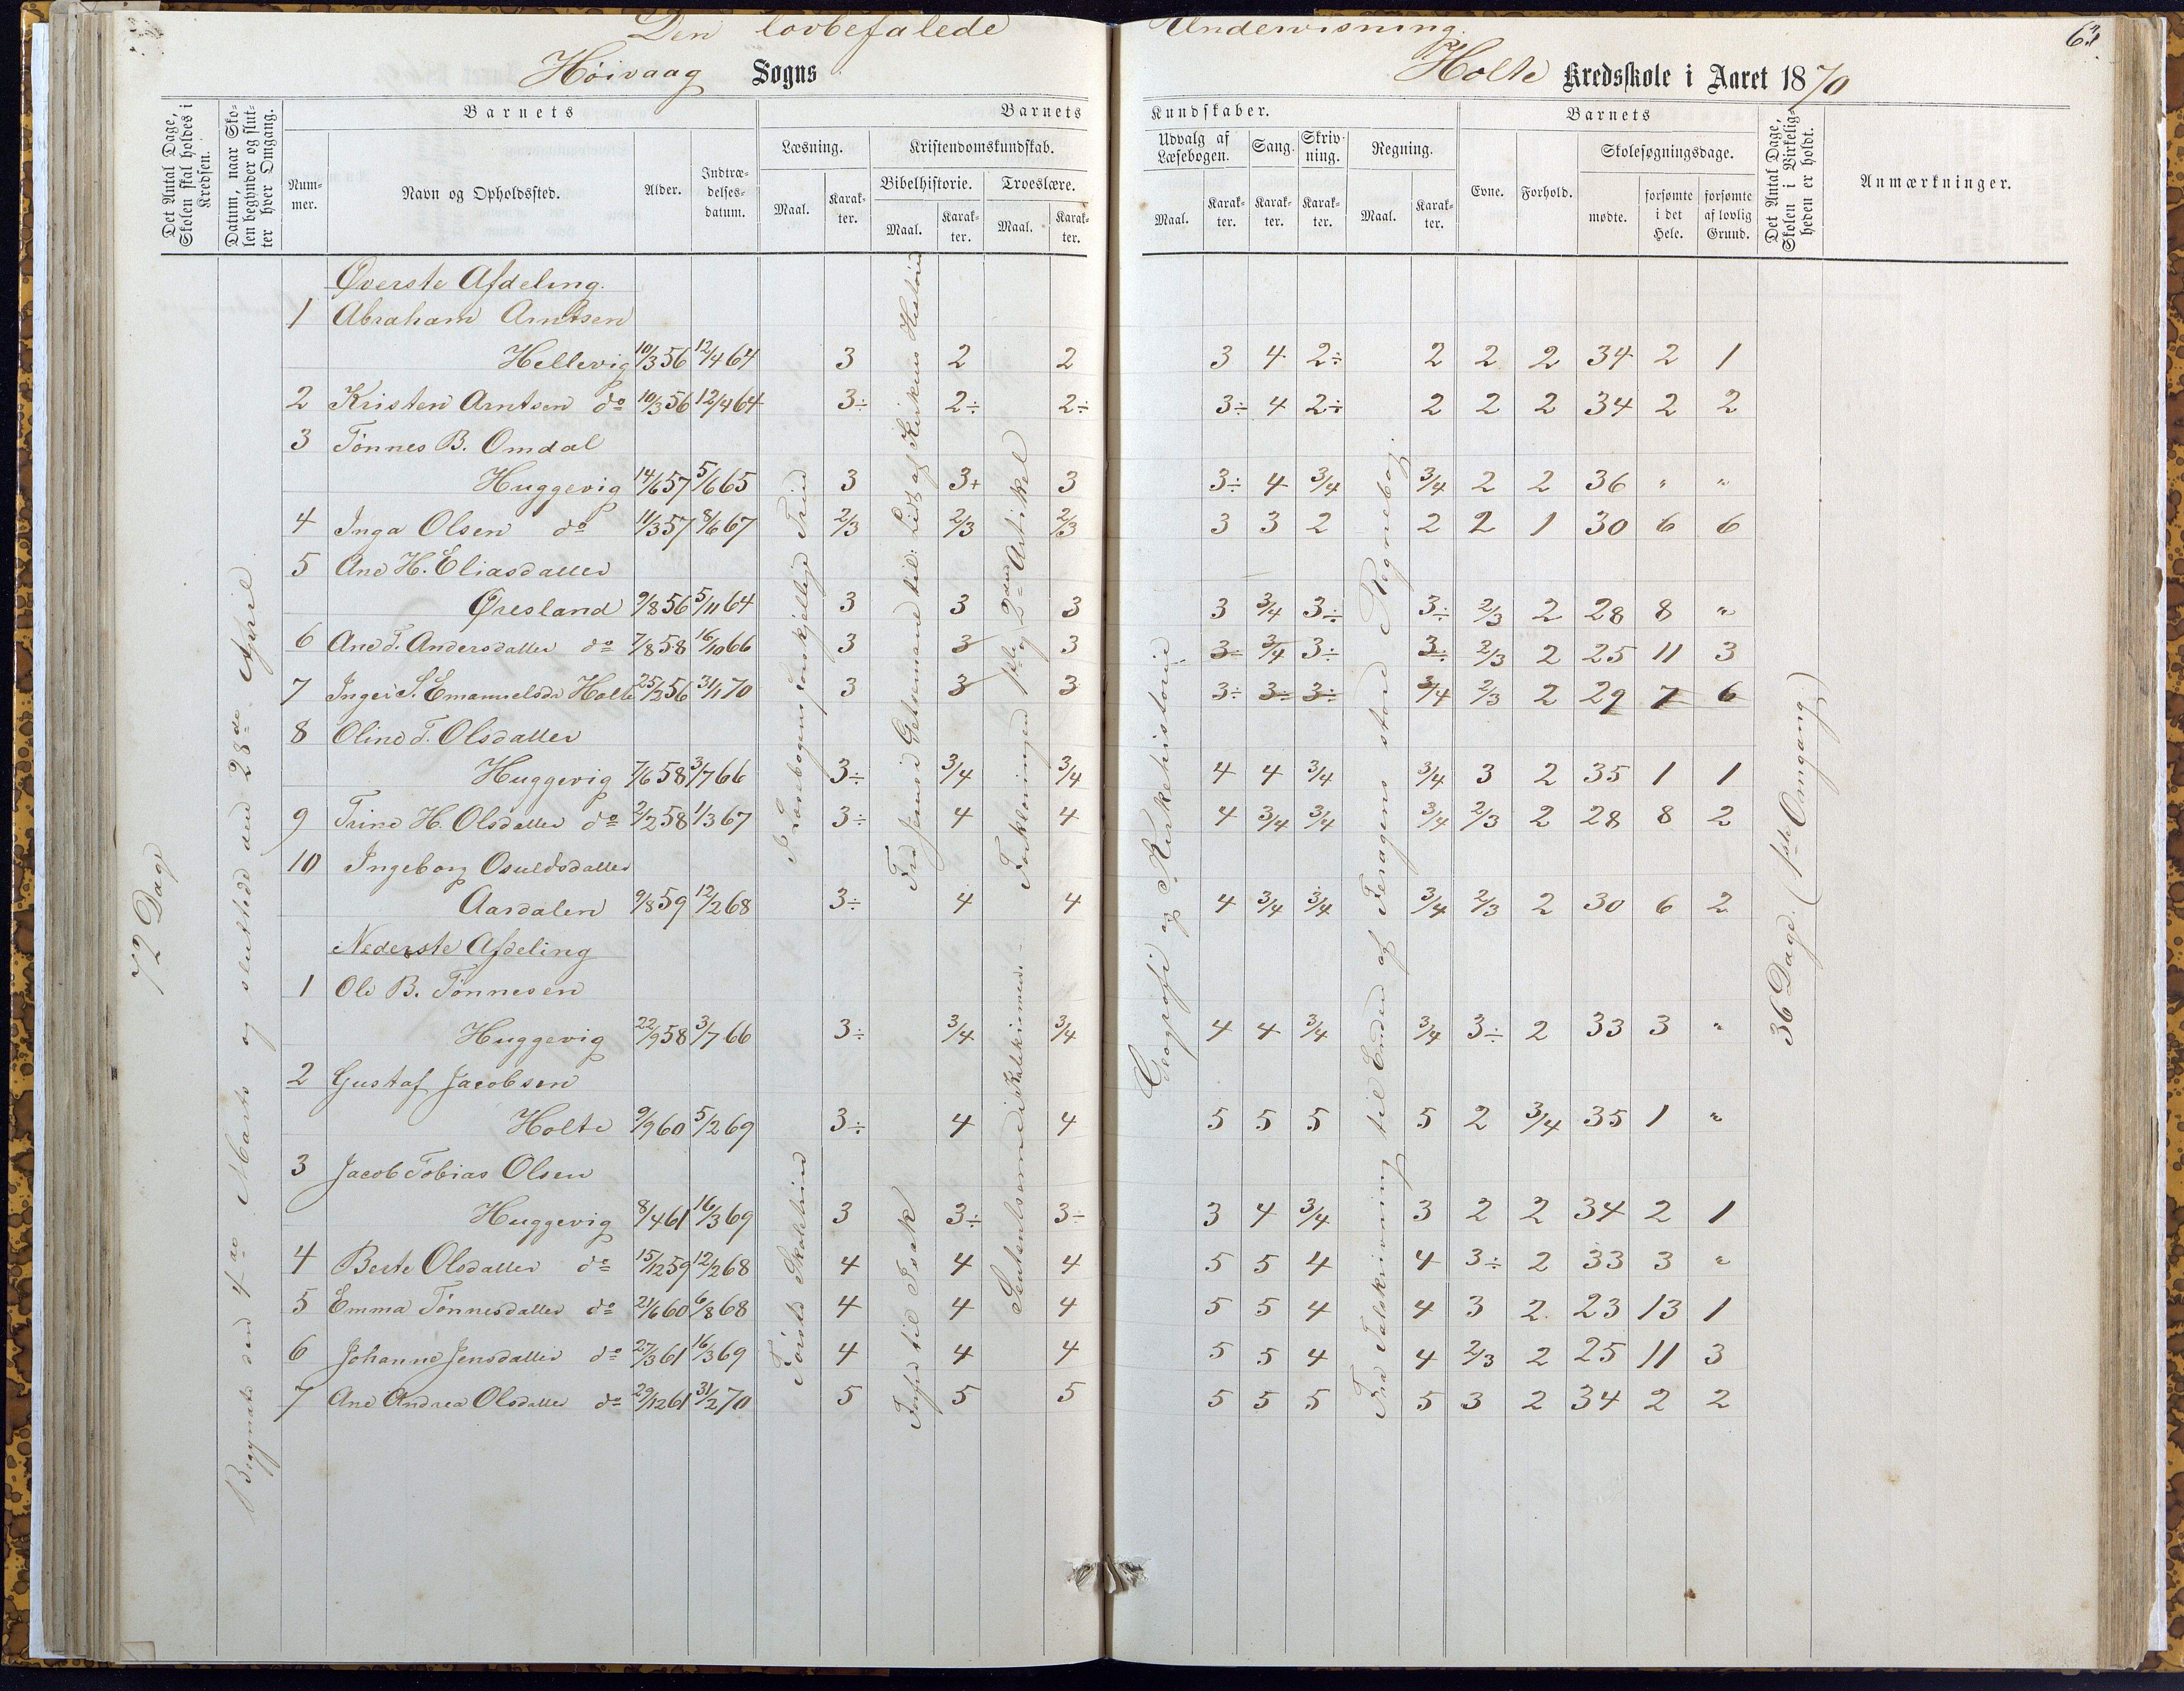 Den lovbefalede Undervisning.
62
Höivaag Sogns Holte Kredsskole i Aaret 1870
Det Antal Dage, Skolen skal holdes i Kredsen.
Datum, naar Skolen begynder og slutter hver Omgang.
Barnets
Nummer.
Navn og Opholdssted.
Alder.
Indtrædelsesdatum.
Barnets Kundskaber.
Læsning.
Maal.
Karakter.
Kristendomskundskab.
Bibelhistorie.
Maal.
Karakter.
Troeslære.
Maal.
Karakter.
Udvalg af Læsebogen.
Maal.
Karakter.
Sang.
Karakter.
Skrivning.
Karakter.
Regning.
Maal.
Karakter.
Barnets
Evne.
Forhold.
Skolesøgningsdage.
mødte.
forsømte i det Hele.
forsømte af lovlig Grund.
Det Antal Dage, Skolen i Virkeligheden er holdt.
Anmærkninger.
72 Dage
Begyndte den 4de Marts og sluttede den 28de April
I Læsebogens forskjellige Trin
Fra Jesus i Getsemane til Lidt af Kirkens Historie
Forklaringen 1ste og 2den Artikel
Geografi og Kirkehistorie
Fra Talskrivning til Enden af Feragens store Regnebog.
36 Dage. (1ste Omgang)
Øverste Afdeling.
1 Abraham Arntsen
Hellevig 10/3 56 12/4 64 3 2 2 3 4 2÷ 2 2 2 34 2 1
2 Kristen Arntsen do 10/3 56 12/4 64 3÷ 2÷ 2÷ 3÷ 4 2÷ 2 2 2 34 2 2
3 Tönnes B. Omdal
Huggevig 14/6 57 5/6 65 3 3+ 3 3÷ 4 3/4 3/4 2 2 36 " "
4 Inga Olsen do 11/3 57 8/6 67 2/3 2/3 2/3 3 3 2 2 2 1 30 6 6
5 Ane H. Eliasdatter
Øresland 9/8 56 5/11 64 3 3 3 3 3/4 3÷ 3÷ 2/3 2 28 8 "
6 Ane T. Andersdatter do 7/8 58 16/10 66 3 3 3 3÷ 3/4 3÷ 3÷ 2/3 2 25 11 3
7 Inger S. Emanuelsdr Holte 25/2 56 31/1 70 3 3 3 3÷ 3÷ 3÷ 3/4 2/3 2 29 7 6
8 Oline T. Olsdatter
Huggevig 7/6 58 3/7 66 3÷ 3/4 3/4 4 4 3/4 3/4 3 2 35 1 1
9 Trine H. Olsdatter do 2/2 58 1/3 67 3÷ 4 4 4 3/4 3/4 3/4 2/3 2 28 8 2
10 Ingeborg Osuldsdatter
Aardalen 9/8 59 12/2 68 3÷ 4 4 4 3/4 3/4 3/4 2/3 2 30 6 2
Nederste Afdeling
Første Skoletrin
Forfra til Isak
Sentenserne i Katekismen.
1 Ole B. Tönnesen
Huggevig 22/9 58 3/7 66 3÷ 3/4 3/4 4 4 3/4 3/4 3÷ 2 33 3 "
2 Gustaf Jacobsen
Holte 9/9 60 5/2 69 3÷ 4 4 5 5 5 5 2 3/4 35 1 "
3 Jacob Tobias Olsen
Huggevig 8/4 61 16/3 69 3 3÷ 3÷ 3 4 3/4 3 2 2 34 2 1
4 Berte Olsdatter do 15/12 59 12/2 68 4 4 4 5 5 4 4 3÷ 2 33 3 "
5 Emma Tönnesdatter do 21/6 60 6/8 68 4 4 4 5 5 4 4 3 2 23 13 1
6 Johanne Jensdatter do 27/3 61 16/3 69 4 4 4 5 5 4 4 2/3 2 25 11 3
7 Ane Andrea Olsdatter do 29/12 61 31/2 70 5 5 5 5 5 5 5 3 2 34 2 2